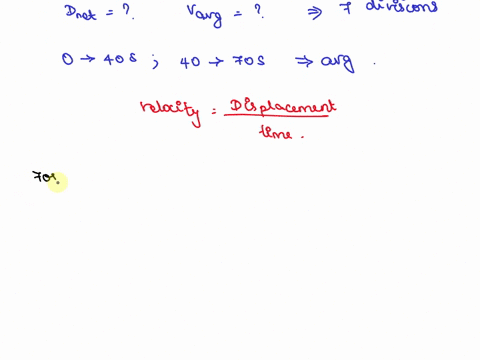 Dnet = ? Vavg = ? ⇒ 7 divisions
0 → 40s ; 40 → 70s ⇒ avg .
velocity = Displacement
time .
70s